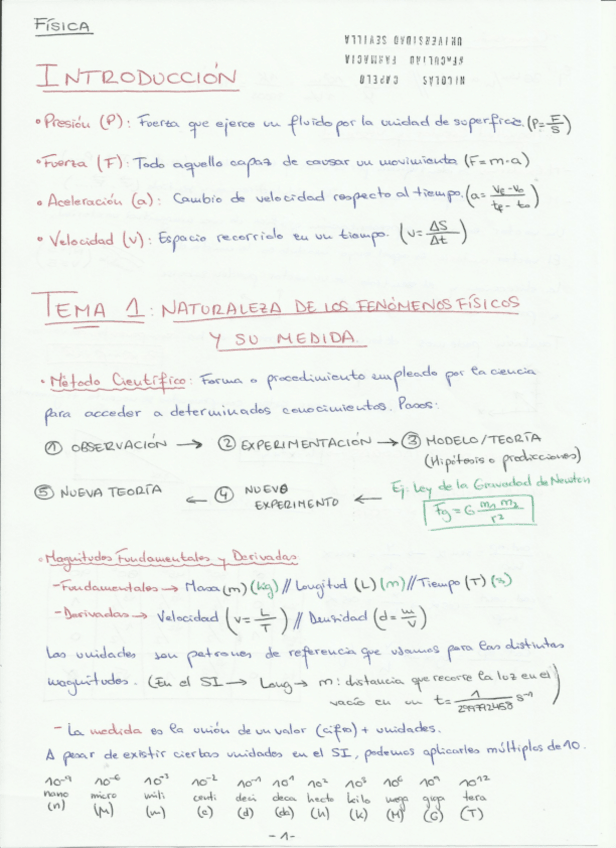 FÍSICA
NICOLAS CAPELO
FACULTAD FARMACIA
UNIVERSIDAD SEVILLA
INTRODUCCIÓN
• Presión (P): Fuerza que ejerce un fluido por la unidad de superficie. (P=F/S)
• Fuerza (F): Todo aquello capaz de causar un movimiento (F=m·a)
• Aceleración (a): Cambio de velocidad respecto al tiempo. (a= vf-v0/tf-t0)
• Velocidad (v): Espacio recorrido en un tiempo. (v= ΔS/Δt)
TEMA 1: NATURALEZA DE LOS FENÓMENOS FÍSICOS
Y SU MEDIDA.
• Método Científico: Forma o procedimiento empleado por la ciencia
para acceder a determinados conocimientos. Pasos:
① OBSERVACIÓN → ② EXPERIMENTACIÓN → ③ MODELO/TEORÍA
(Hipótesis o predicciones)
⑤ NUEVA TEORÍA ← ④ NUEVO EXPERIMENTO ← Ej: Ley de la Gravedad de Newton
Fg = G m1 m2/r²
• Magnitudes Fundamentales y Derivadas
- Fundamentales → Masa (m) (kg) // Longitud (L) (m) // Tiempo (T) (s)
- Derivadas → Velocidad (v= L/T) // Densidad (d= m/V)
Las unidades son patrones de referencia que usamos para las distintas
magnitudes. (En el SI → Long → m: distancia que recorre la luz en el
vacío en un t= 1/299792458 s⁻¹)
- La medida es la unión de un valor (cifra) + unidades.
A pesar de existir ciertas unidades en el SI, podemos aplicarles múltiplos de 10.
10⁻⁹ 10⁻⁶ 10⁻³ 10⁻² 10⁻¹ 10¹ 10² 10³ 10⁶ 10⁹ 10¹²
nano micro mili centi deci deca hecto kilo mega giga tera
(n) (M) (m) (c) (d) (da) (h) (k) (M) (G) (T)
- 1 -